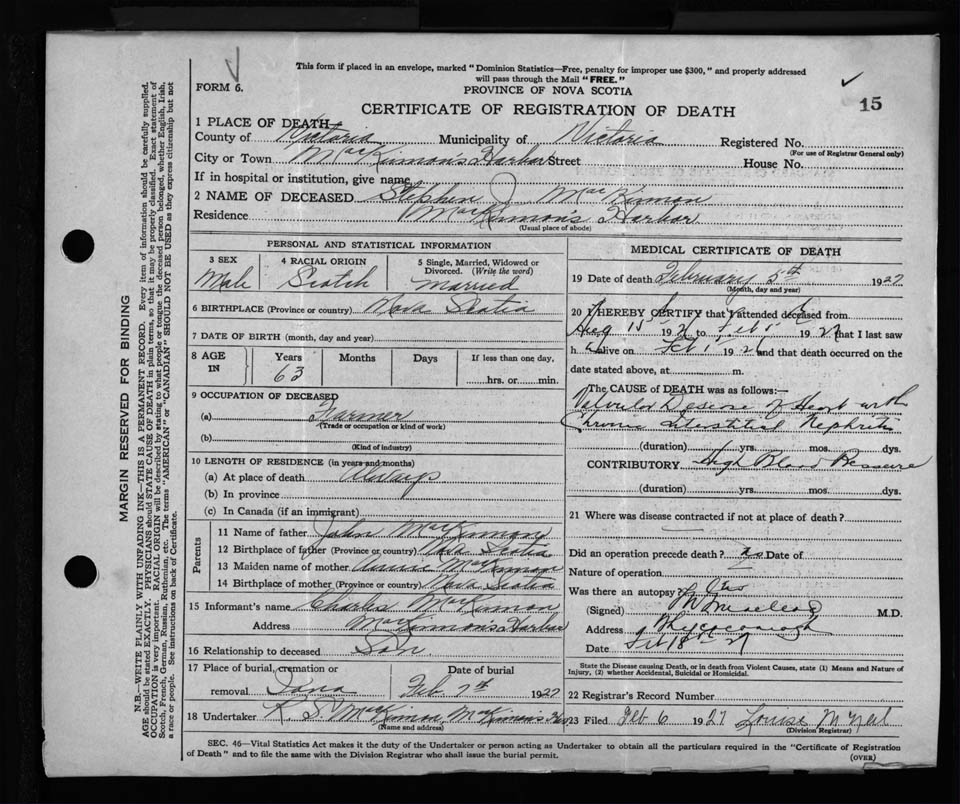 This form if placed in an envelope, marked "Dominion Statistics—Free, penalty for improper use $300," and properly addressed
will pass through the Mail "FREE."
FORM 6.
PROVINCE OF NOVA SCOTIA
15
CERTIFICATE OF REGISTRATION OF DEATH
1 PLACE OF DEATH
County of Victoria Municipality of Victoria Registered No.
(For use of Registrar General only)
City or Town MacKinnon's Harbor Street House No.
If in hospital or institution, give name
2 NAME OF DECEASED Stephen J MacKinnon
Residence MacKinnon's Harbor
(Usual place of abode)
PERSONAL AND STATISTICAL INFORMATION
3 SEX
Male
4 RACIAL ORIGIN
Scotch
5 Single, Married, Widowed or
Divorced. (Write the word)
Married
6 BIRTHPLACE (Province or country) Nova Scotia
7 DATE OF BIRTH (month, day and year)
8 AGE
IN
Years
63
Months
Days
If less than one day,
hrs. or min.
9 OCCUPATION OF DECEASED
(a) Farmer
(Trade or occupation or kind of work)
(b)
(Kind of industry)
10 LENGTH OF RESIDENCE (in years and months)
(a) At place of death Always
(b) In province
(c) In Canada (if an immigrant)
Parents
11 Name of father John MacKinnon
12 Birthplace of father (Province or country) Nova Scotia
13 Maiden name of mother Annie MacKinnon
14 Birthplace of mother (Province or country) Nova Scotia
15 Informant's name Charles MacKinnon
Address MacKinnon's Harbor
16 Relationship to deceased Son
17 Place of burial, cremation or
removal Iona
Date of burial
Feb 7th 1927
18 Undertaker R. S. MacKinnon MacKinnon's Har
(Name and address)
MEDICAL CERTIFICATE OF DEATH
19 Date of death February 5th 1927
(Month, day and year)
20 I HEREBY CERTIFY that I attended deceased from
Aug 15 192 to Feb 5 1927 that I last saw
h alive on Feb 1 192 and that death occurred on the
date stated above, at m.
The CAUSE of DEATH was as follows:—
Valvular Disease of Heart with
Chronic Interstitial Nephritis
(duration) yrs. mos. dys.
CONTRIBUTORY High Blood Pressure
(duration) yrs. mos. dys.
21 Where was disease contracted if not at place of death?
Did an operation precede death? no Date of
Nature of operation
Was there an autopsy?
(Signed) MacLeod M.D.
Address Whycocomagh
Date Feb 18 27
State the Disease causing Death, or in death from Violent Causes, state (1) Means and Nature of
Injury, (2) whether Accidental, Suicidal or Homicidal.
22 Registrar's Record Number
23 Filed Feb 6 1927 Louise McNeil
(Division Registrar)
SEC. 46—Vital Statistics Act makes it the duty of the Undertaker or person acting as Undertaker to obtain all the particulars required in the "Certificate of Registration
of Death" and to file the same with the Division Registrar who shall issue the burial permit.
(OVER)
MARGIN RESERVED FOR BINDING
N.B.—WRITE PLAINLY WITH UNFADING INK—THIS IS A PERMANENT RECORD. Every item of information should be carefully supplied.
AGE should be stated EXACTLY. PHYSICIANS should STATE CAUSE OF DEATH in plain terms, so that it may be properly classified. Exact statement of
OCCUPATION is very important. RACIAL ORIGIN will be described by stating to what people or tongue the deceased person belonged, whether English, Irish,
Scotch, French, German, Russian, Ruthenian, etc. The terms "AMERICAN" or "CANADIAN" SHOULD NOT BE USED as they express citizenship but not
a race or people. See instructions on back of Certificate.